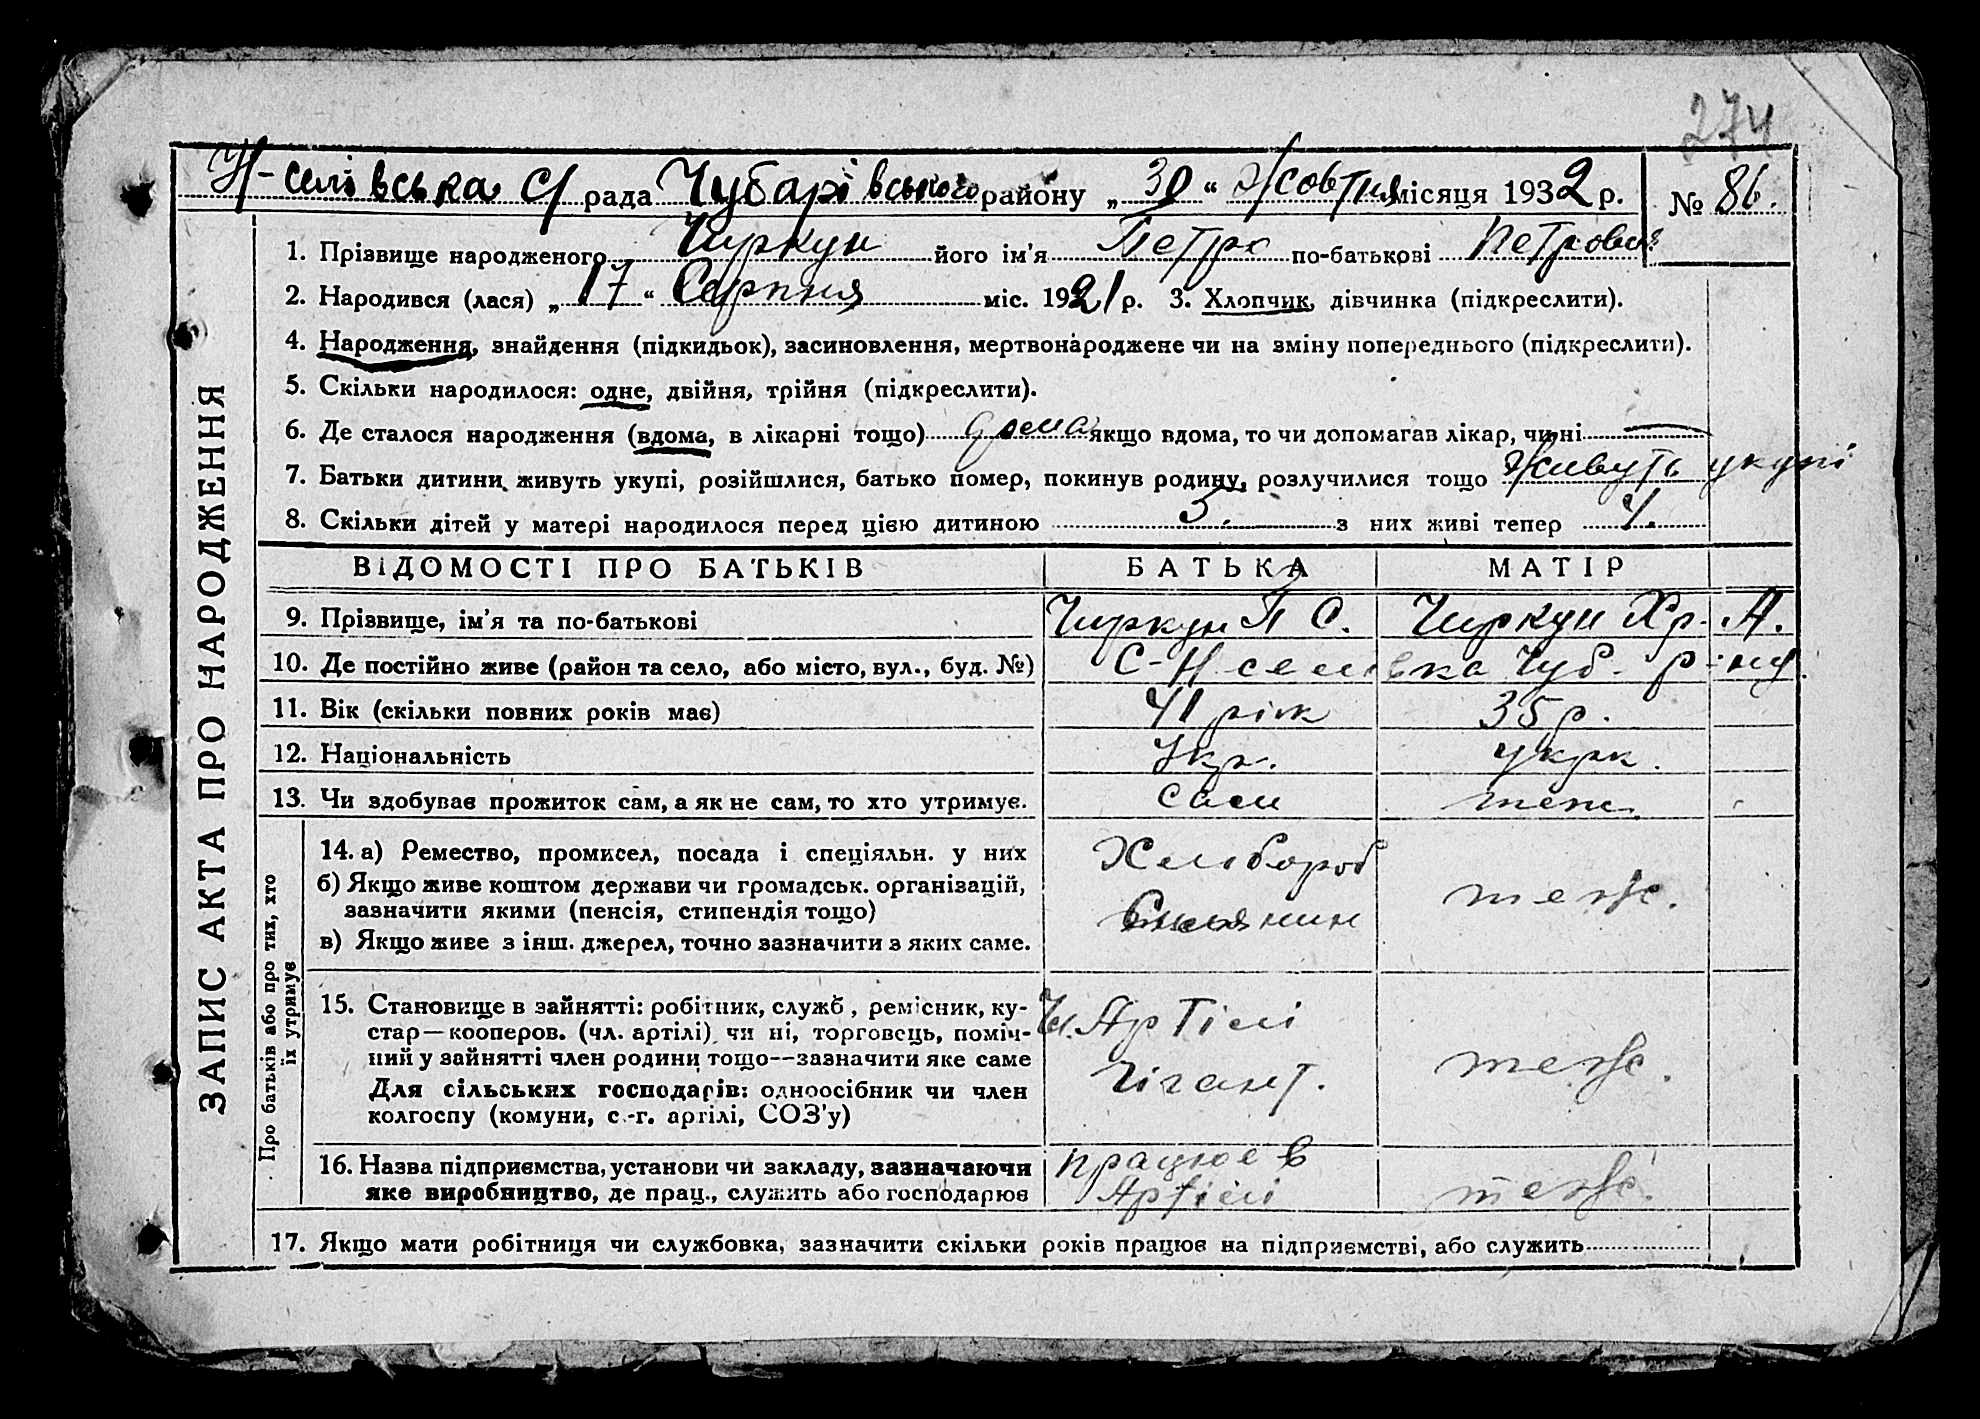 274
Н-селівська с/рада Чубарівського району „30“ Жовтня місяця 1932 р. № 86.
ЗАПИС АКТА ПРО НАРОДЖЕННЯ
1. Прізвище народженого Чиркун його ім'я Петро по-батькові Петрович
2. Народився (лася) „17“ Серпня міс. 1921 р. 3. Хлопчик, дівчинка (підкреслити).
4. Народження, знайдення (підкидьок), засиновлення, мертвонароджене чи на зміну попереднього (підкреслити).
5. Скільки народилося: одне, двійня, трійня (підкреслити).
6. Де сталося народження (вдома, в лікарні тощо) дома якщо вдома, то чи допомагав лікар, чи ні —
7. Батьки дитини живуть укупі, розійшлися, батько помер, покинув родину, розлучилися тощо Живуть укупі
8. Скільки дітей у матері народилося перед цією дитиною 5. з них живі тепер 4.
ВІДОМОСТІ ПРО БАТЬКІВ БАТЬКА МАТІР
9. Прізвище, ім'я та по-батькові Чиркун П С. Чиркун Хр. А.
10. Де постійно живе (район та село, або місто, вул., буд. №) С-Н селівка Чуб. р-ну
11. Вік (скільки повних років має) 41 рік 35 р.
12. Національність Укр. укрк.
13. Чи здобував прожиток сам, а як не сам, то хто утримує. Сам теж.
Про батьків або про тих, хто
їх утримує
14. а) Ремество, промисел, посада і спеціяльн. у них Хлібороб
б) Якщо живе коштом держави чи громадськ. організацій,
зазначити якими (пенсія, стипендія тощо) Селянин теж.
в) Якщо живе з інш. джерел, точно зазначити з яких саме.
15. Становище в зайнятті: робітник, служб, ремісник, ку- Чл. Артілі
стар—кооперов. (чл. артілі) чи ні, торговець, поміч-
ний у зайнятті член родини тощо--зазначити яке саме Гігант. теж.
Для сільських господарів: одноосібник чи член
колгоспу (комуни, с.-г. артілі, СОЗ'у)
16. Назва підприємства, установи чи закладу, зазначаючи працює в
яке виробництво, де прац., служить або господарює Артілі теж.
17. Якщо мати робітниця чи службовка, зазначити скільки років працює на підприємстві, або служить